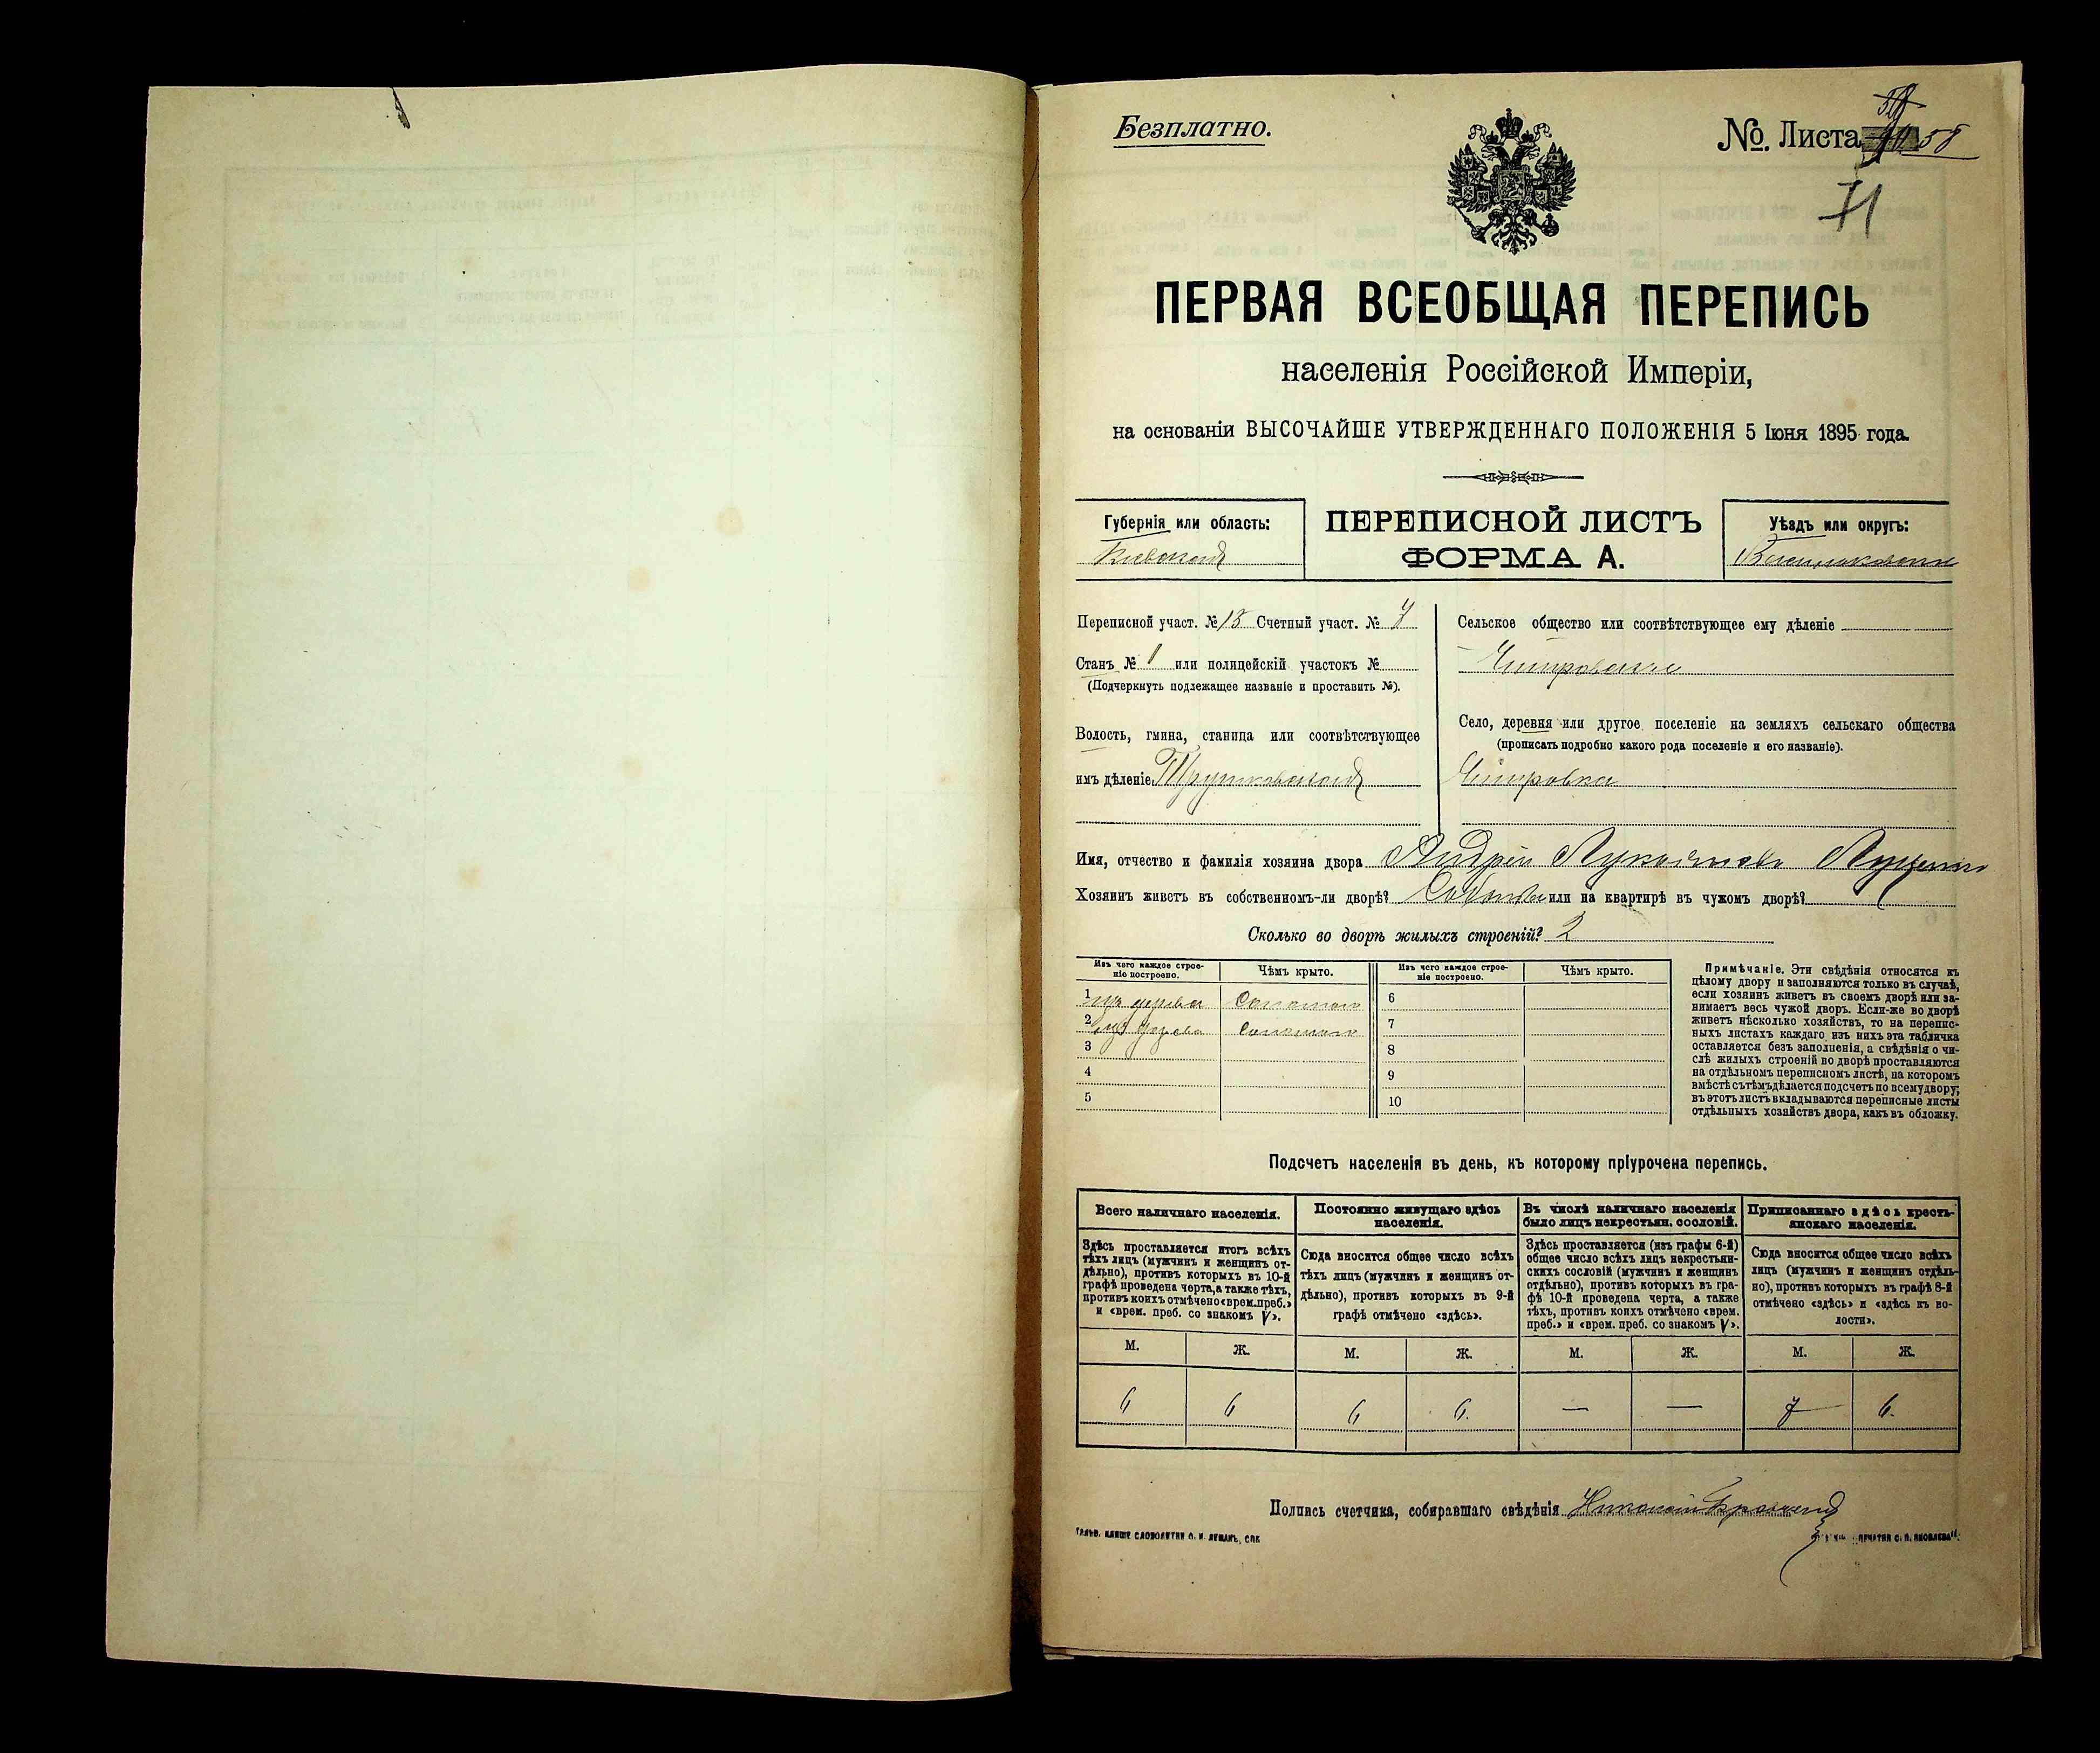 Безплатно.
№. Листа 58
71
ПЕРВАЯ ВСЕОБЩАЯ ПЕРЕПИСЬ
населенія Россійской Имперіи,
на основаніи ВЫСОЧАЙШЕ УТВЕРЖДЕННАГО ПОЛОЖЕНІЯ 5 Іюня 1895 года.
Губернія или область:
Кіевская
ПЕРЕПИСНОЙ ЛИСТЪ
ФОРМА А.
Уѣздъ или округъ:
Переписной участ. № 15 Счетный участ. № 7
Станъ № 1 или полицейскій участокъ №
(Подчеркнуть подлежащее названіе и проставить №).
Волость, гмина, станица или соотвѣтствующее
имъ дѣленіе
Сельское общество или соотвѣтствующее ему дѣленіе
Село, деревня или другое поселеніе на земляхъ сельскаго общества
(прописать подробно какого рода поселеніе и его названіе).
Имя, отчество и фамилія хозяина двора Андрій
Хозяинъ живетъ въ собственномъ-ли дворѣ? или на квартирѣ въ чужомъ дворѣ?
Сколько во дворѣ жилыхъ строеній? 2
Изъ чего каждое строе-
ніе построено.
Чѣмъ крыто.
Изъ чего каждое строе-
ніе построено.
Чѣмъ крыто.
1 изъ дерева Соломою
2 изъ дерева Соломою
3
4
5
6
7
8
9
10
Примѣчаніе. Эти свѣдѣнія относятся къ
цѣлому двору и заполняются только въ случаѣ,
если хозяинъ живетъ въ своемъ дворѣ или за-
нимаетъ весь чужой дворъ. Если-же во дворѣ
живетъ нѣсколько хозяйствъ, то на перепис-
ныхъ листахъ каждаго изъ нихъ эта табличка
оставляется безъ заполненія, а свѣдѣнія о чи-
слѣ жилыхъ строеній во дворѣ проставляются
на отдѣльномъ переписномъ листѣ, на которомъ
вмѣстѣ съ тѣмъ дѣлается подсчетъ по всему двору;
въ этотъ листъ вкладываются переписные листы
отдѣльныхъ хозяйствъ двора, какъ въ обложку.
Подсчетъ населенія въ день, къ которому пріурочена перепись.
Всего наличнаго населенія.
Здѣсь проставляется итогъ всѣхъ
тѣхъ лицъ (мужчинъ и женщинъ от-
дѣльно), противъ которыхъ въ 10-й
графѣ проведена черта, а также тѣхъ,
противъ коихъ отмѣчено «врем. преб.»
и «врем. преб. со знакомъ V».
Постоянно живущаго здѣсь
населенія.
Сюда вносится общее число всѣхъ
тѣхъ лицъ (мужчинъ и женщинъ от-
дѣльно), противъ которыхъ въ 9-й
графѣ отмѣчено «здѣсь».
Въ числѣ наличнаго населенія
было лицъ некрестьян. сословій.
Здѣсь проставляется (изъ графы 6-й)
общее число всѣхъ лицъ некрестьян-
скихъ сословій (мужчинъ и женщинъ
отдѣльно), противъ которыхъ въ гра-
фѣ 10-й проведена черта, а также
тѣхъ, противъ коихъ отмѣчено «врем.
преб.» и «врем. преб. со знакомъ V».
Приписаннаго здѣсь кресть-
янскаго населенія.
Сюда вносится общее число всѣхъ
лицъ (мужчинъ и женщинъ отдѣль-
но), противъ которыхъ въ графѣ 8-й
отмѣчено «здѣсь» и «здѣсь къ во-
лости».
М. Ж. М. Ж. М. Ж. М. Ж.
6 6 6 6. — — 7 6.
Подпись счетчика, собиравшаго свѣдѣнія Николай